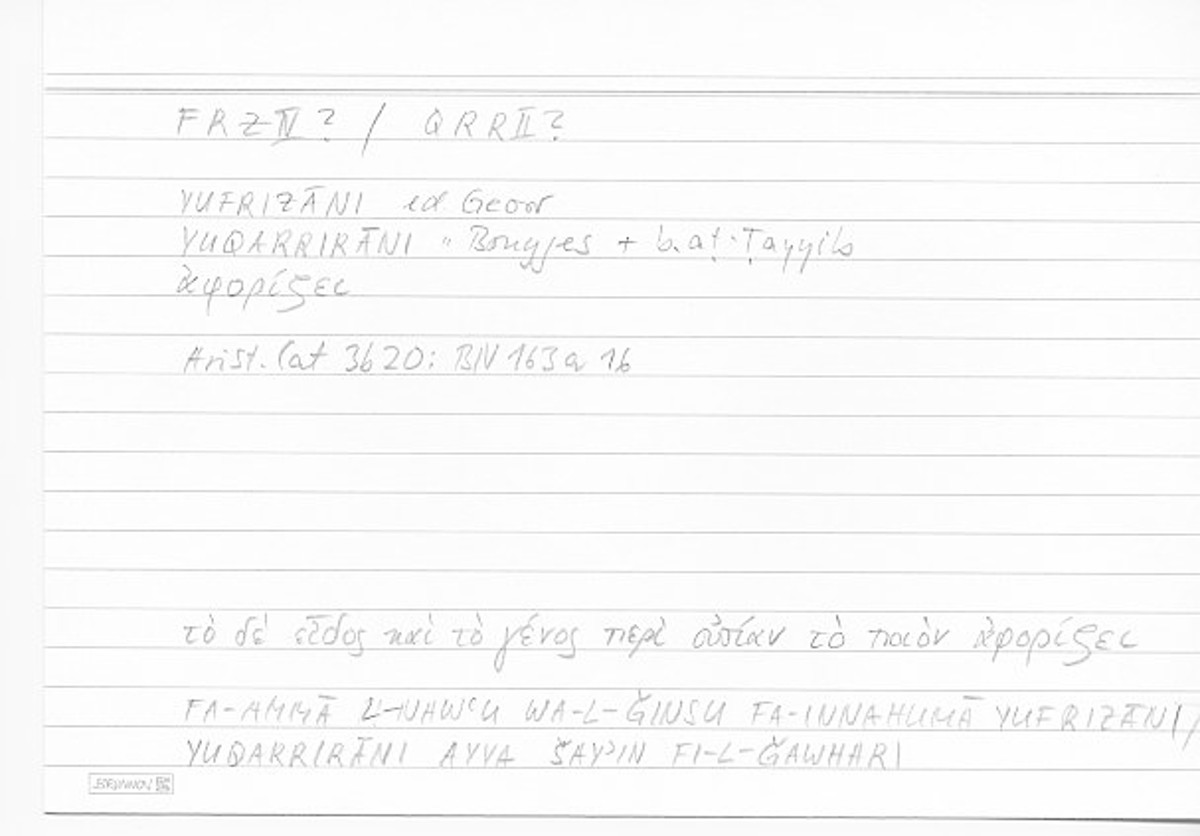 FRZ IV? / QRR II?
YUFRIZĀNI ed. Georr
YUQARRIRĀNI " Bouyges + b. aṭ-Ṭayyib
ἀφορίζει
Arist. Cat 3b20: BN 163a 16
τὸ δὲ εἶδος καὶ τὸ γένος περὶ οὐσίαν τὸ ποιὸν ἀφορίζει
FA-AMMĀ L-NAWʿU WA-L-ǦINSU FA-INNAHUMĀ YUFRIZĀNI/
YUQARRIRĀNI AYYA ŠAYʾIN FI-L-ǦAWHARI